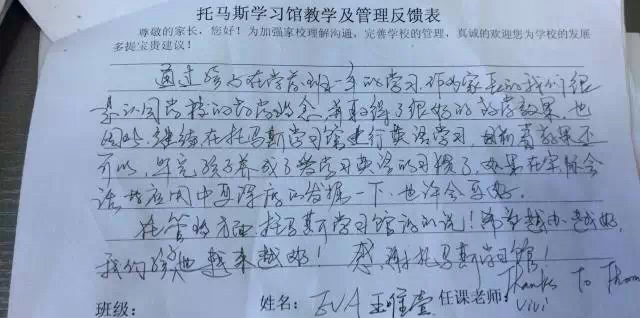 托马斯学习馆教学及管理反馈表
尊敬的家长，您好！为加强家校理解沟通，完善学校的管理，真诚的欢迎您为学校的发展
多提宝贵建议！
通过孩子在学前班一年的学习，作为家长的我们很
认同学校的教学理念，并取得了很好的教学效果，也
因此继续在托马斯学习馆进行英语学习，目前看效果还
可以，毕竟孩子养成了学习英语的习惯了，如果在实际会
话和应用中再深层的发掘一下，也许会更好。
托管的方面托马斯学习馆没的说！希望越办越好，
我们的孩子也越来越好！感谢托马斯学习馆！
班级：
姓名：EVA 王唯壹
任课老师：Vivi
Thanks To Thom